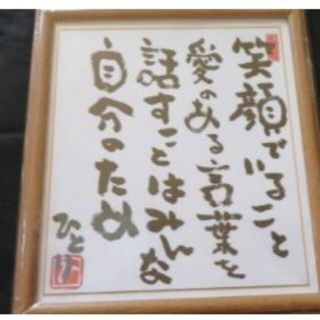 笑顔でいること
愛のある言葉を
話すことはみんな
自分のため
ひとり